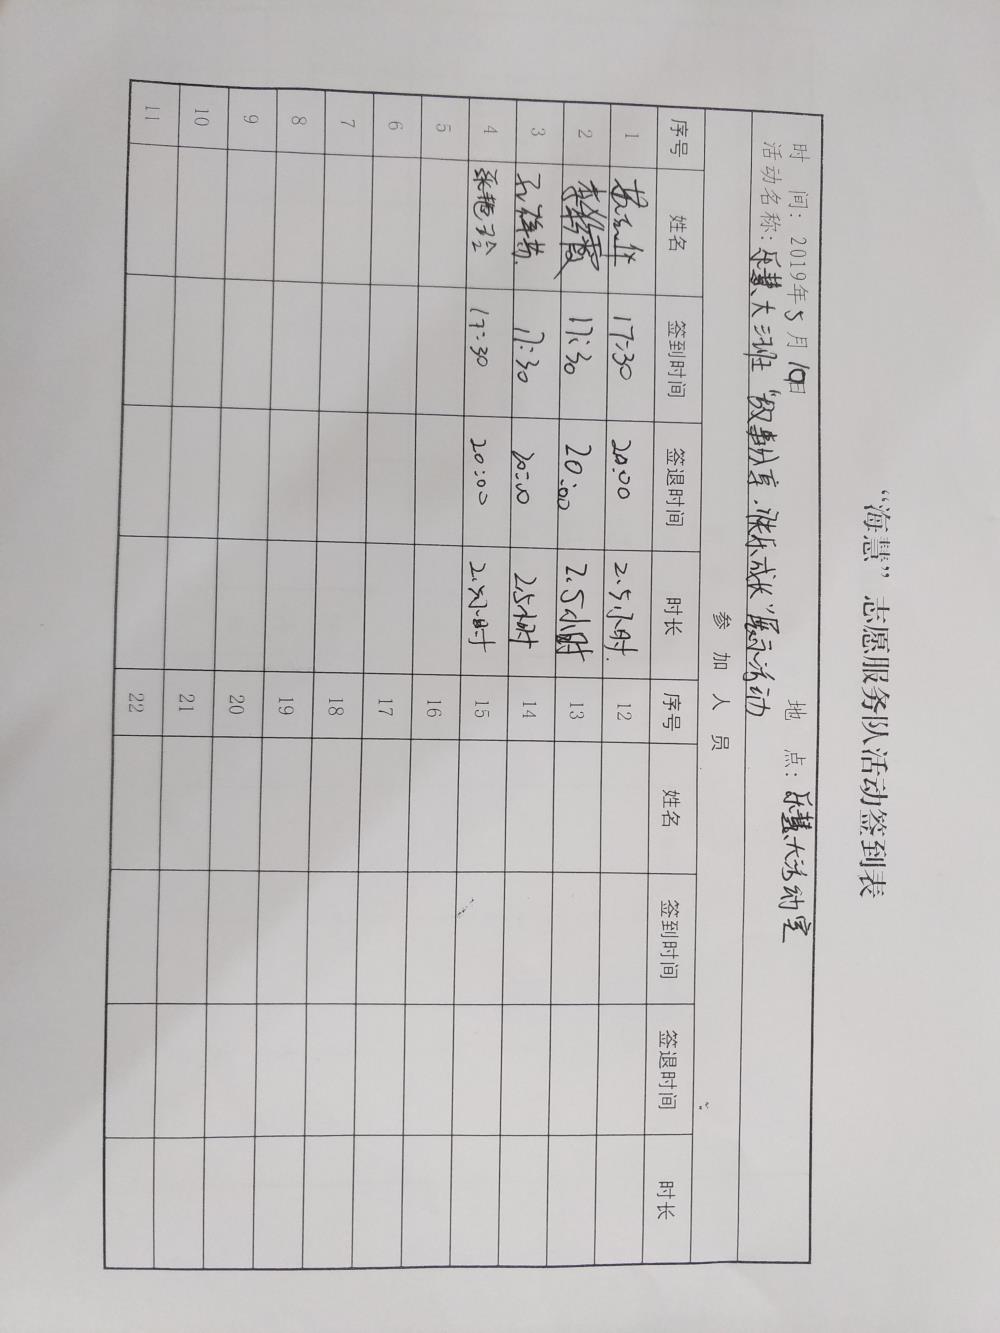 “海慧”志愿服务队活动签到表
时 间：2019年5月10日 地 点：乐慧大活动室
活动名称：乐慧大三班“故事分享.快乐成长”展示活动
参 加 人 员
序号 姓名 签到时间 签退时间 时长 序号 姓名 签到时间 签退时间 时长
1 17:30 20:00 2.5小时. 12
2 17:30 20:00 2.5小时 13
3 17:30 20:00 2.5小时 14
4 张艳玲 17:30 20:00 2.5小时 15
5 16
6 17
7 18
8 19
9 20
10 21
11 22